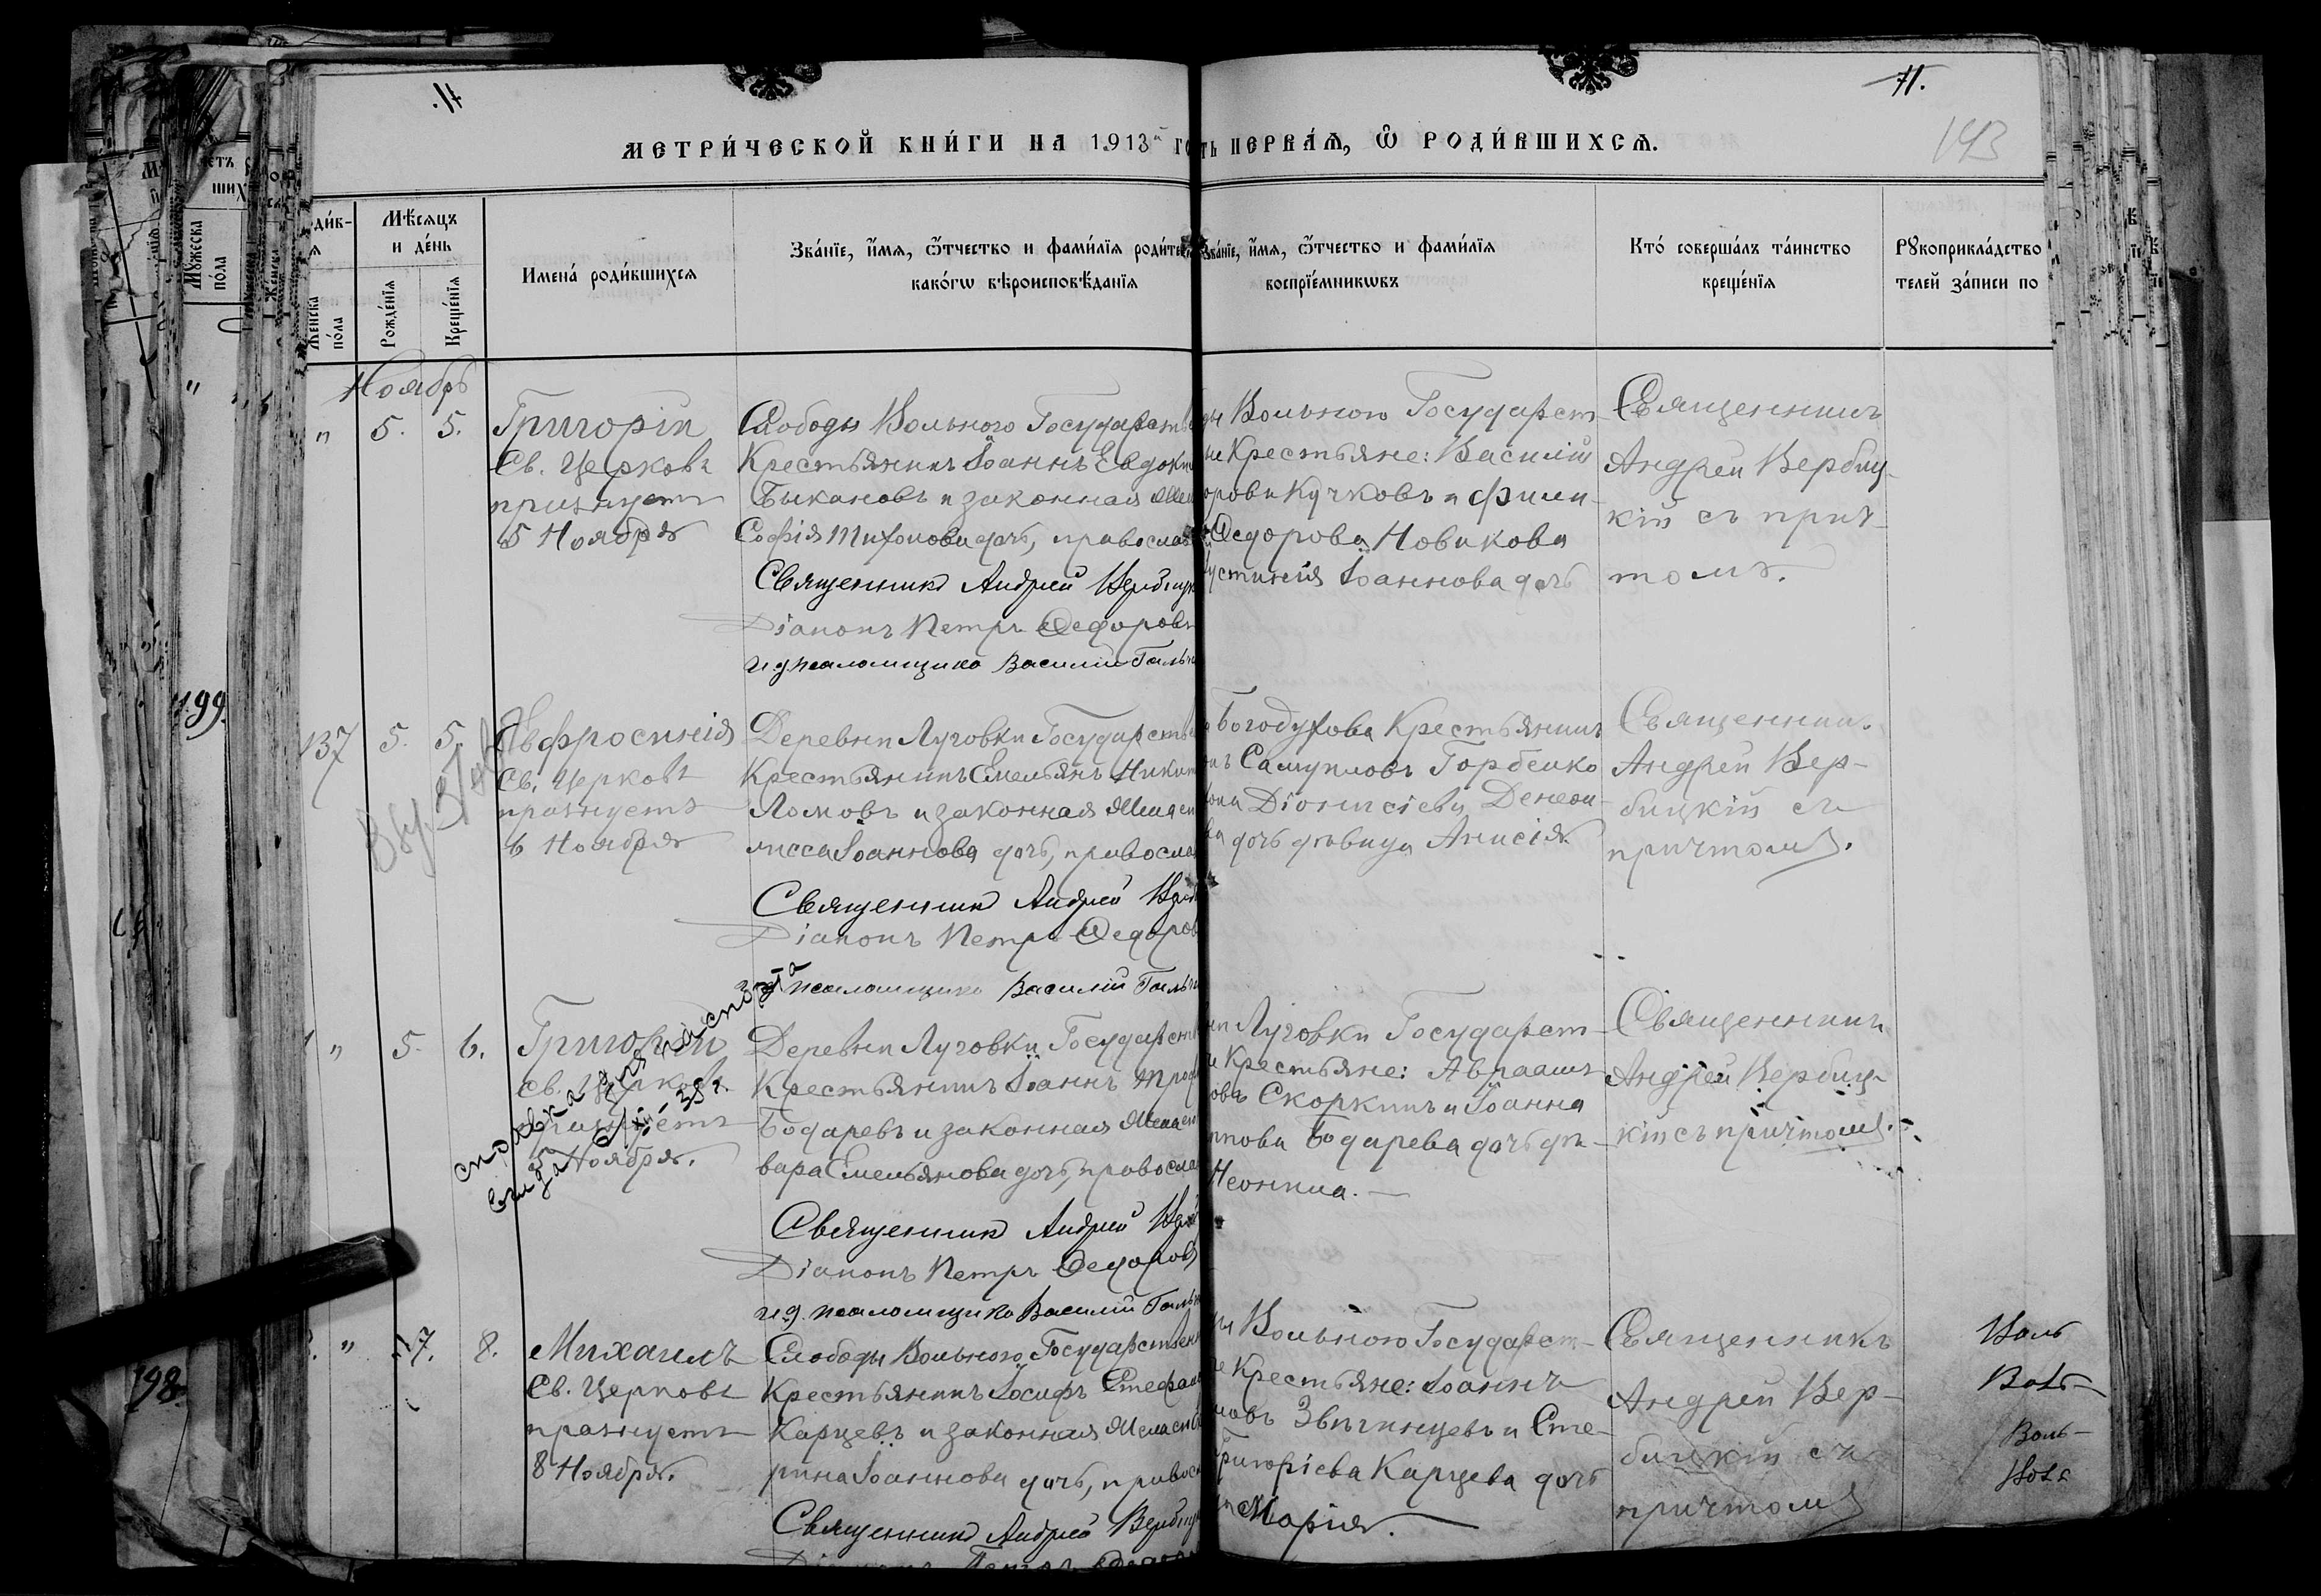 71.
143
МЕТРИ́ЧЕСКОЙ КНИ́ГИ НА 1913й
ПЕРВАѦ, Ѽ РОДИ́ВШИХСѦ.
Мѣсяцъ
и де́нь
Женска
по́ла
Рожде́нїя
Креще́нїя
Имена̀ роди́вшихся
Зва́нїе, и҆́мя, ѻ҆́тчество и фами́лїя
како́гѡ вѣроисповѣ́данїя
Зва́нїе, и҆́мя, ѻ҆́тчество и фами́лїя
воспрїе́мникѡвъ
Кто́ соверша́лъ та́инство
креще́нїя
Рꙋкоприкла́дство
телей за́писи по
Мꙋжеска
по́ла
Ноябрь
" 5. 5.
Григорій
Св. Церковь
празнуетъ
5 Ноября
Слободы Вольного Государств
Крестьянинъ Іоаннъ Евдоки
Быкановъ и законная жен
Софія Тихонова дочь, правосла
Священникъ Андрей Вербиц
Діаконъ Петръ Ѳедоров
и д псаломщика Василій Галь
Вольного Государст
Крестьяне: Василій
Кучковъ и Фили-
Ѳедорова Новикова
устинія Іоаннова дочь
Священникъ
Андрей Вербиц-
кій съ прич-
томъ.
199.
137 5. 5.
Евфросинія
Св. Церковь
празнуетъ
6 Ноября
Деревни Луговки Государств
Крестьянинъ Емельянъ Никит
Ломовъ и законная жена е
лисса Іоаннова дочь, правосла
Священникъ Андрей
Діаконъ Петръ Ѳедоров
и д псаломщика Василій Галь
Богодухова Крестьянинъ
Самуиловъ Горбенко
Діонисіева
дочь дѣвица Анисія.
Священни.
Андрей Вер-
бицкій съ
причтомъ.
справка
" 5. 6.
Григорій
Св. Церковь
празнуетъ
5 Ноября.
Деревни Луговки Государств
Крестьянинъ Іоаннъ Троф
Бодаревъ и законная Жена е
вара Емельянова дочь, правосла
Священникъ Андрей
Діаконъ Петръ Ѳедоров
и д. псаломщика Василій Галь
Луговки Государст-
Крестьяне: Авраамъ
Скоркинъ и Іоанна
Бодарева дочь дѣ-
Неонила.
Священникъ
Андрей Вербиц-
кій съ причтомъ.
" 7. 8.
Михаилъ
Св. Церковь
празнуетъ
8 Ноября.
Слободы Вольного Государствен
Крестьянинъ Іосифъ Стефан
Карцевъ и законная Жена
рина Іоаннова дочь, правос
Священникъ Андрей Вербиц
Вольного Государст-
Крестьяне: Іоаннъ
Звягинцевъ и Сте-
Григоріева Карцева дочь
Марія.
Священникъ
Андрей Вер-
бицкій съ
причтомъ
198.